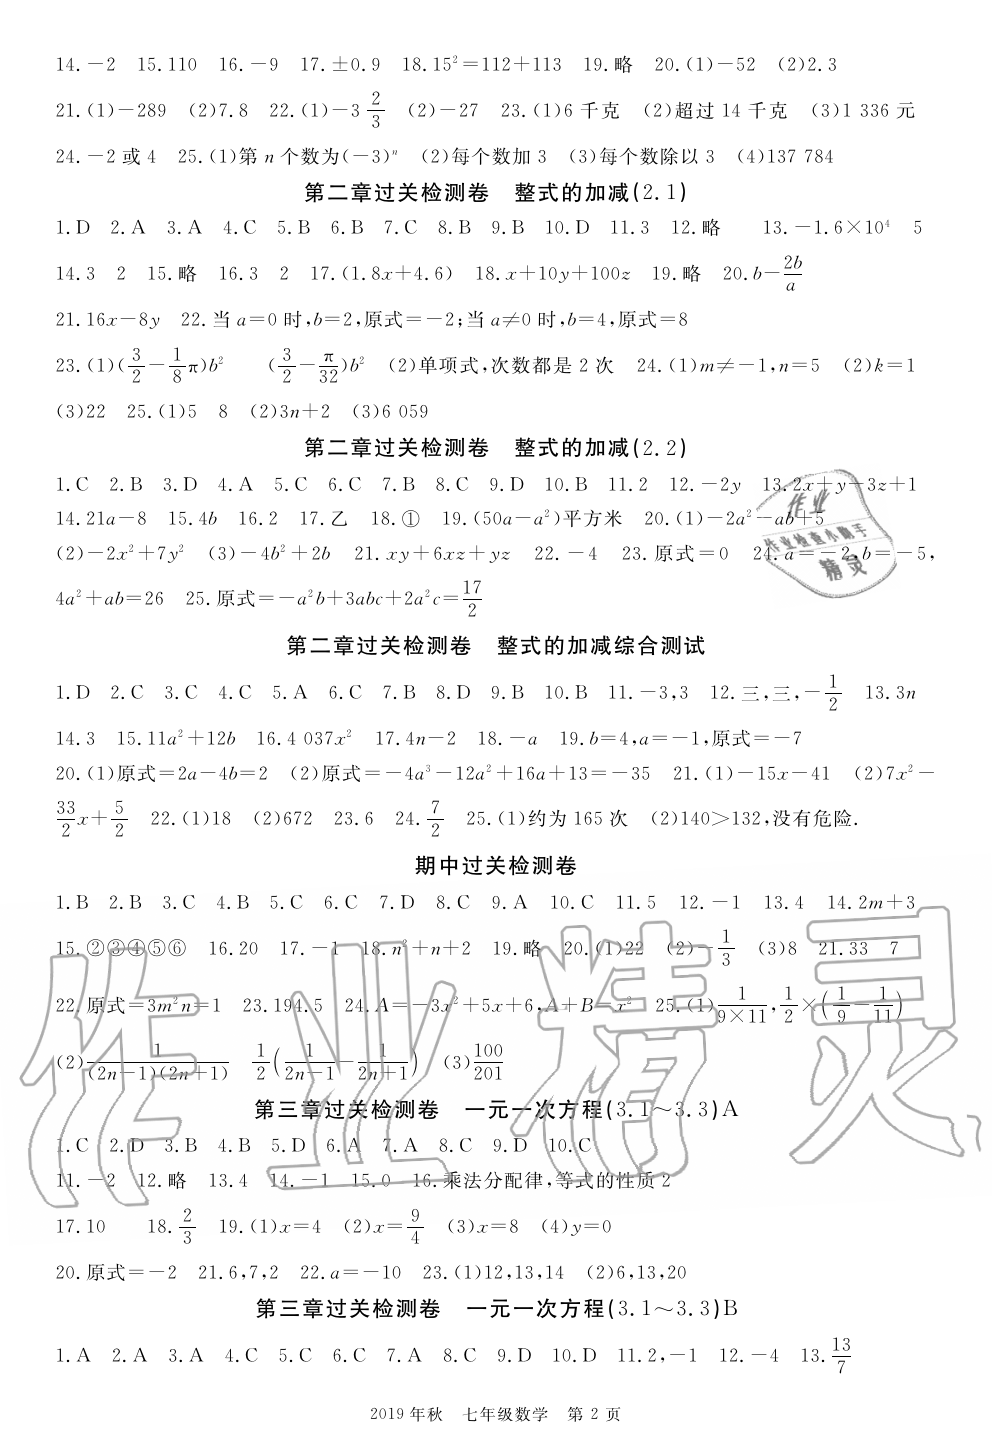 14.-2 15.110 16.-9 17.±0.9 18.15²=112+113 19.略 20.(1)-52 (2)2.3
21.(1)-289 (2)7.8 22.(1)-3 2/3 (2)-27 23.(1)6千克 (2)超过14千克 (3)1 336元
24.-2或4 25.(1)第n个数为(-3)ⁿ (2)每个数加3 (3)每个数除以3 (4)137 784
第二章过关检测卷 整式的加减(2.1)
1.D 2.A 3.A 4.C 5.B 6.B 7.C 8.B 9.B 10.D 11.3 12.略 13.-1.6×10⁴ 5
14.3 2 15.略 16.3 2 17.(1.8x+4.6) 18.x+10y+100z 19.略 20.b-2b/a
21.16x-8y 22.当a=0时,b=2,原式=-2;当a≠0时,b=4,原式=8
23.(1)(3/2-1/8π)b² (3/2-π/32)b² (2)单项式,次数都是2次 24.(1)m≠-1,n=5 (2)k=1
(3)22 25.(1)5 8 (2)3n+2 (3)6 059
第二章过关检测卷 整式的加减(2.2)
1.C 2.B 3.D 4.A 5.C 6.C 7.B 8.C 9.D 10.B 11.2 12.-2y 13.2x+y+3z+1
14.21a-8 15.4b 16.2 17.乙 18.① 19.(50a-a²)平方米 20.(1)-2a²-ab+5
(2)-2x²+7y² (3)-4b²+2b 21.xy+6xz+yz 22.-4 23.原式=0 24.a=-2,b=-5,
4a²+ab=26 25.原式=-a²b+3abc+2a²c=17/2
作业
作业检查小助手
精灵
第二章过关检测卷 整式的加减综合测试
1.D 2.C 3.C 4.C 5.A 6.C 7.B 8.D 9.B 10.B 11.-3,3 12.三,三,-1/2 13.3n
14.3 15.11a²+12b 16.4 037x² 17.4n-2 18.-a 19.b=4,a=-1,原式=-7
20.(1)原式=2a-4b=2 (2)原式=-4a³-12a²+16a+13=-35 21.(1)-15x-41 (2)7x²-
33/2x+5/2 22.(1)18 (2)672 23.6 24.7/2 25.(1)约为165次 (2)140>132,没有危险.
期中过关检测卷
1.B 2.B 3.C 4.B 5.C 6.C 7.D 8.C 9.A 10.C 11.5 12.-1 13.4 14.2m+3
15.②③④⑤⑥ 16.20 17.-1 18.n²+n+2 19.略 20.(1)22 (2)-1/3 (3)8 21.33 7
22.原式=3m²n=1 23.194.5 24.A=-3x²+5x+6,A+B=x² 25.(1)1/(9×11),1/2×(1/9-1/11)
(2)1/((2n-1)(2n+1)) 1/2(1/(2n-1)-1/(2n+1)) (3)100/201
作业精灵
第三章过关检测卷 一元一次方程(3.1~3.3)A
1.C 2.D 3.B 4.B 5.D 6.A 7.A 8.C 9.D 10.C
11.-2 12.略 13.4 14.-1 15.0 16.乘法分配律,等式的性质2
17.10 18.2/3 19.(1)x=4 (2)x=9/4 (3)x=8 (4)y=0
20.原式=-2 21.6,7,2 22.a=-10 23.(1)12,13,14 (2)6,13,20
第三章过关检测卷 一元一次方程(3.1~3.3)B
1.A 2.A 3.A 4.C 5.C 6.C 7.A 8.C 9.D 10.D 11.2,-1 12.-4 13.13/7
2019年秋 七年级数学 第2页